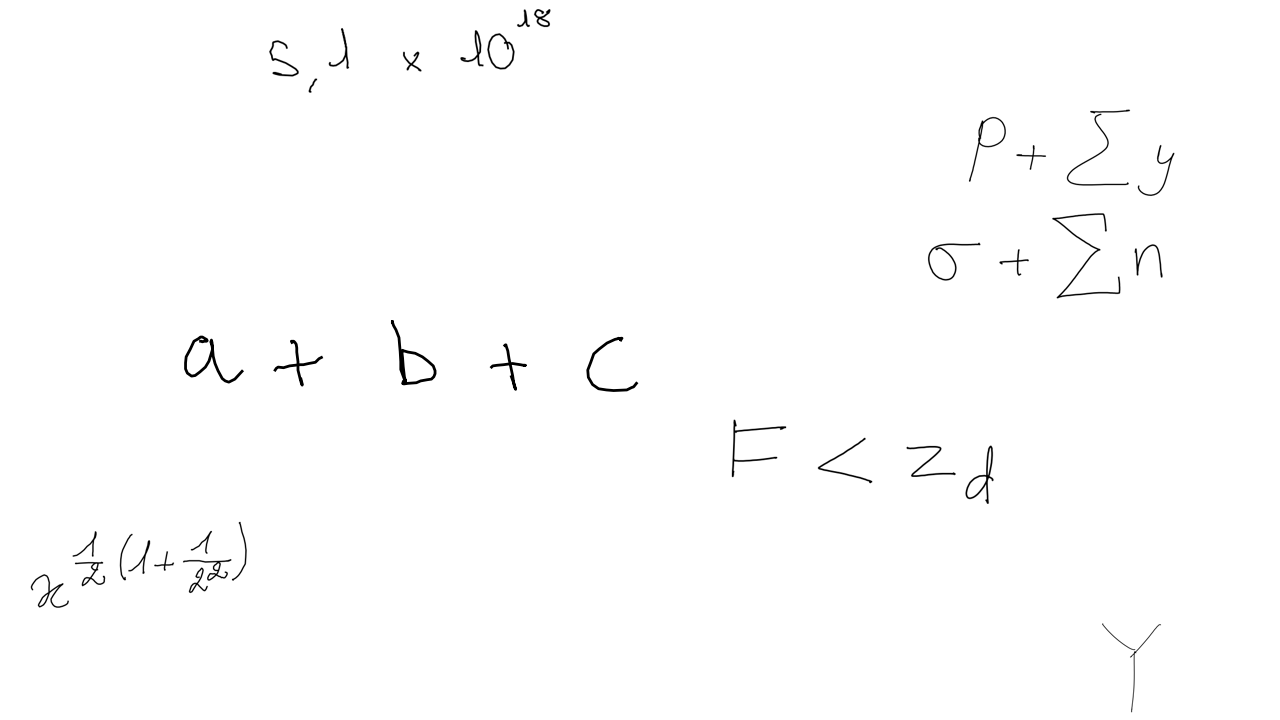 5,1 × 10^{18}
p + ∑ y
σ + ∑ n
a + b + c
F < z_d
x^{\frac{1}{2}(1+\frac{1}{2^2})}
Y